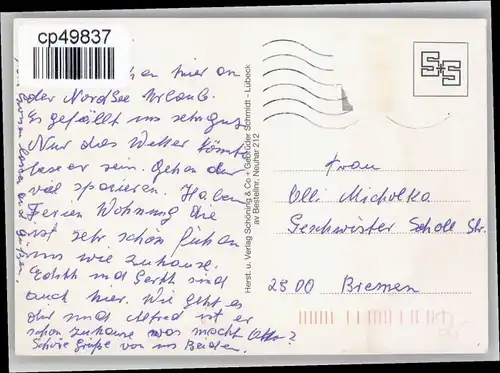 cp49837
hier an
der Nordsee Urlaub.
Es gefällt uns sehr gut
Nur das Wetter könnte
besser sein. Gehen
viel spazieren. Haben
Ferien Wohnung die
ist sehr schön fühlen
uns wie zuhause.
Edith und Gerth sind
auch hier. Wie geht es
dir und Alfred ist er
schon zuhause was macht Otto?
Schöne Grüße von uns Beiden.
Herst. u. Verlag Schöning & Co + Gebrüder Schmidt - Lübeck
av Bestellnr. Neuhar 212
S+S
Frau
Olli Micholka
Geschwister Scholl Str.
2800 Bremen